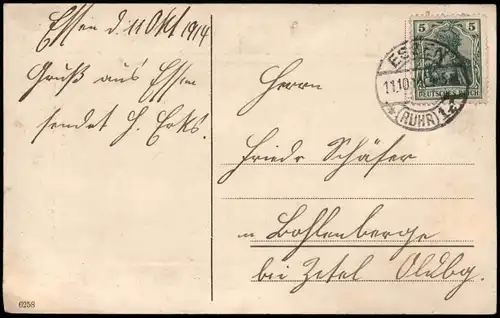 Essen d. 11 Okt 1914
Gruß aus Essen
sendet H. Ecks.
6258
5 5
DEUTSCHES REICH
ESSEN
11.10.14
(RUHR) 1
Herrn
Friedr Schäfer
in Bohlenberge
bei Zetel Oldbg.